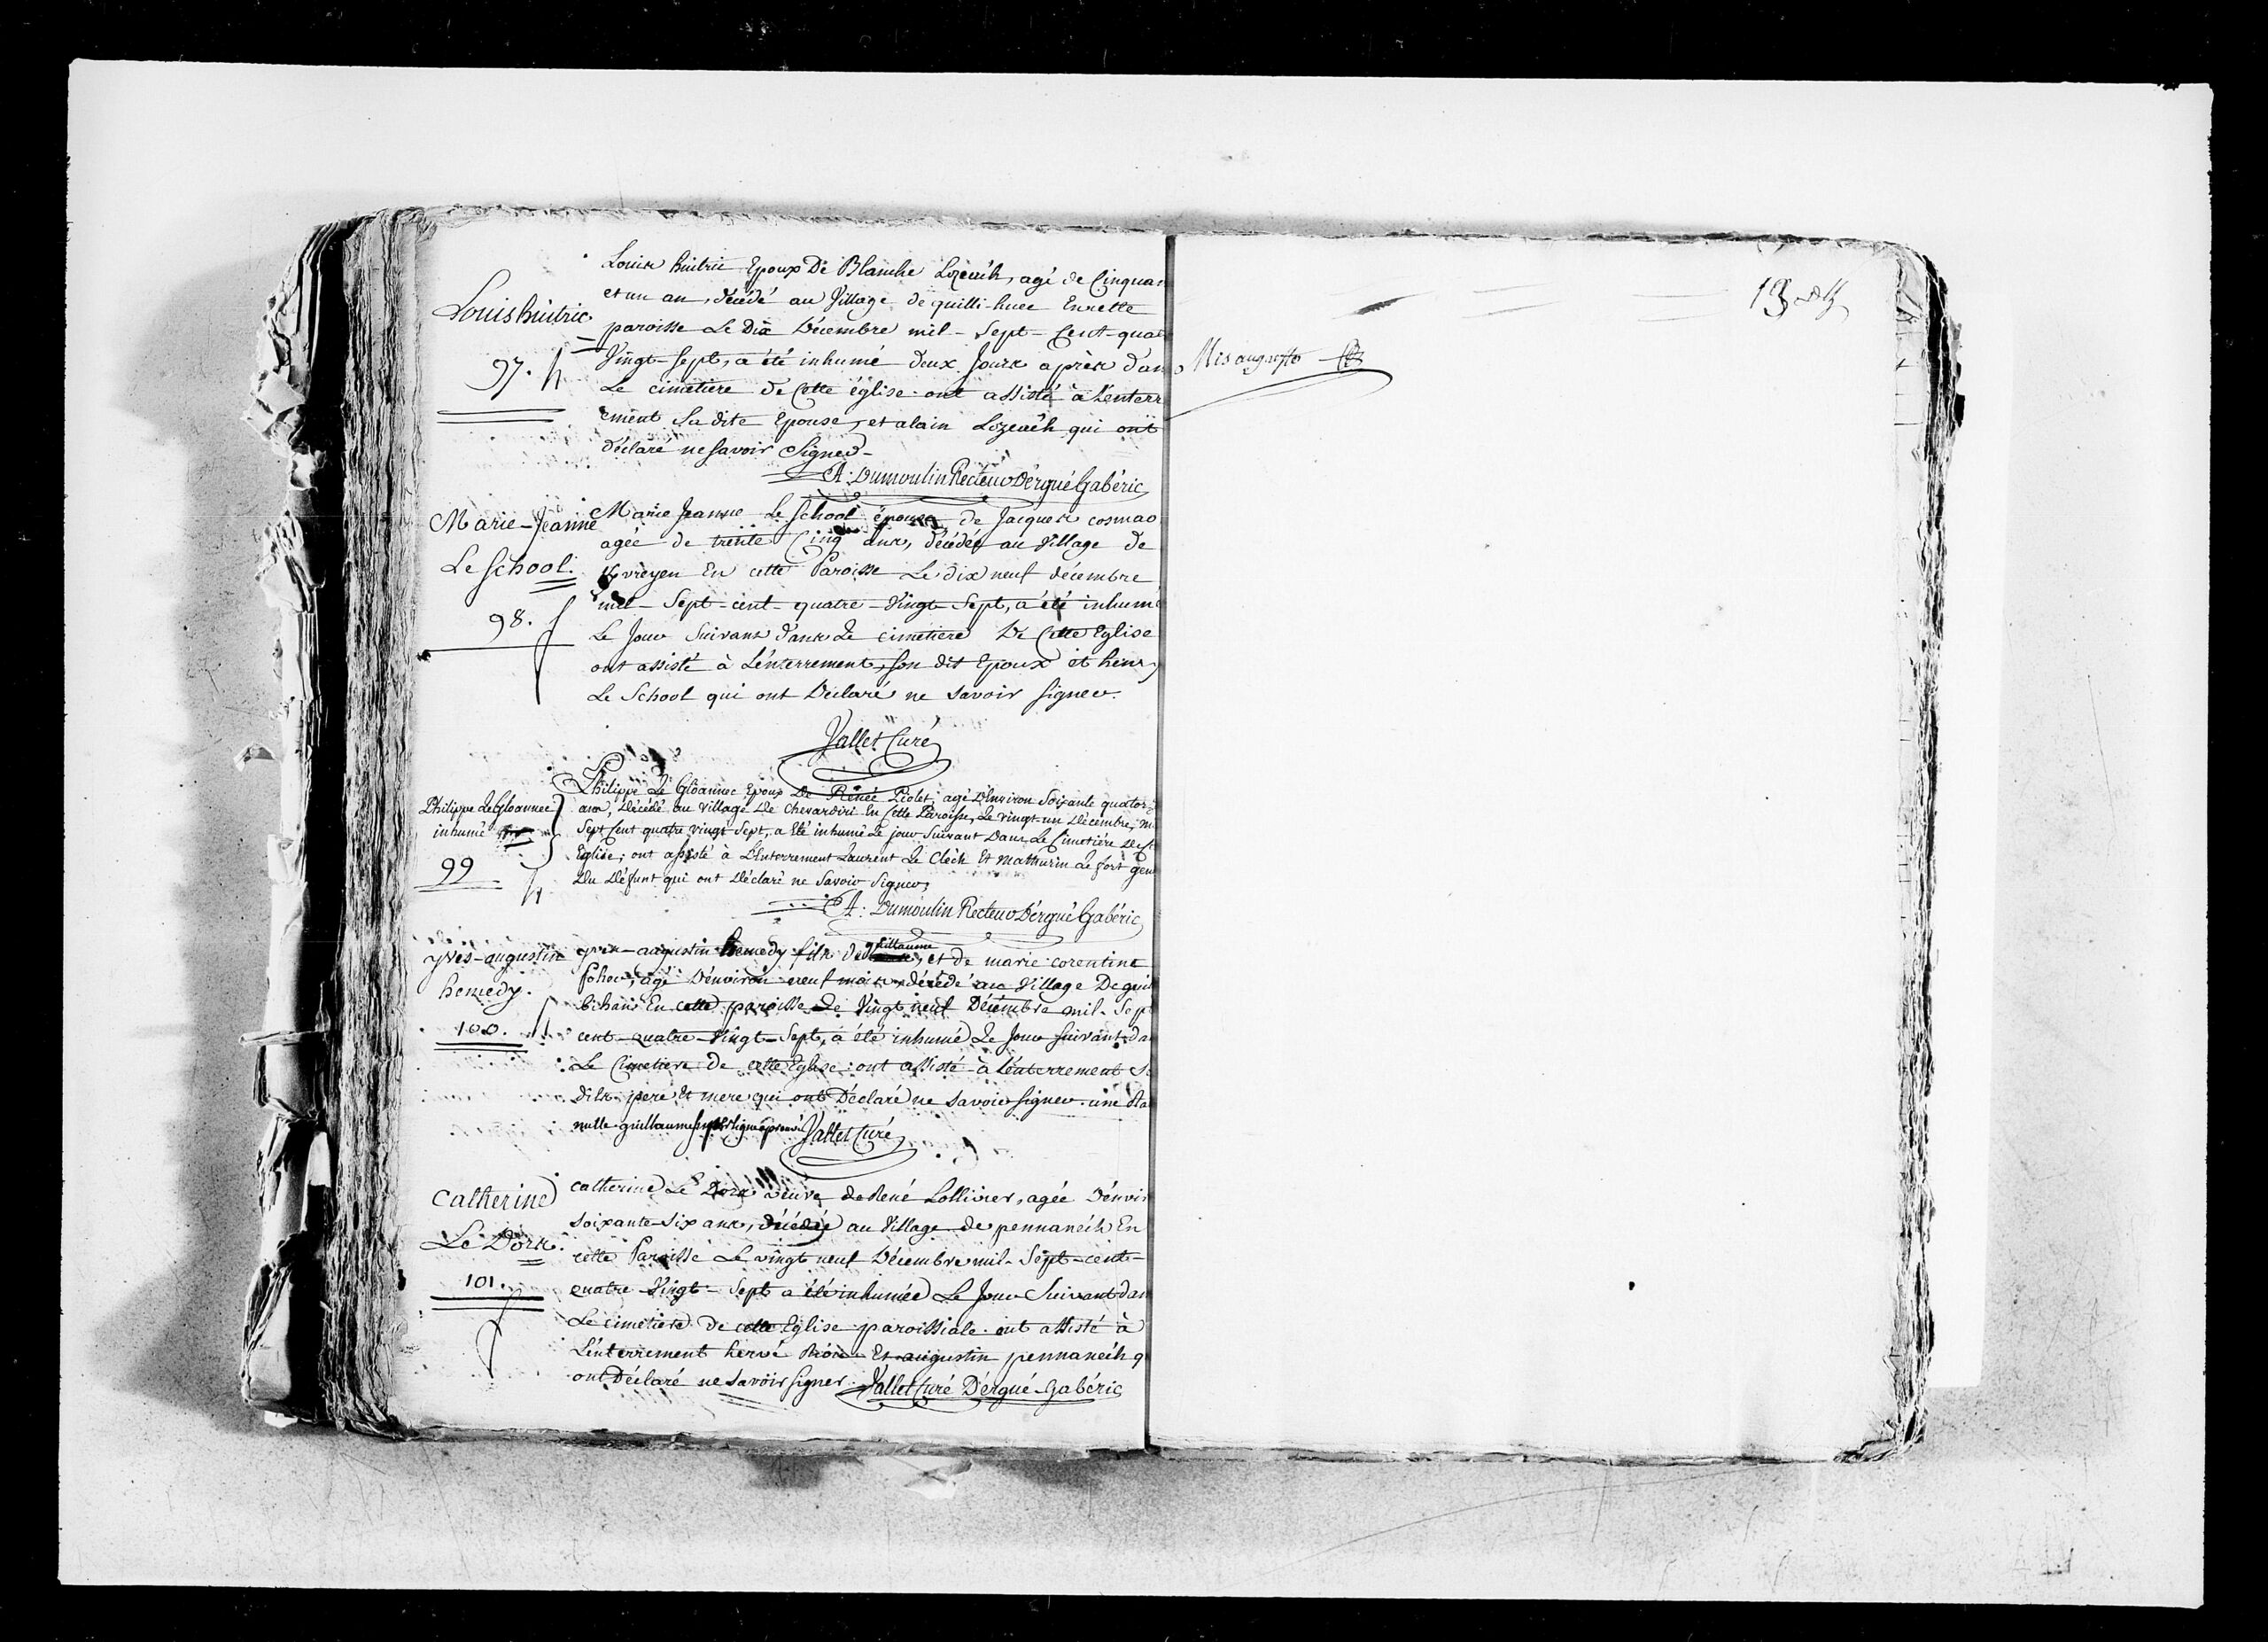 Louis huitric
97.
Louis huitric Epoux De Blanche Lozeaëh, agé de Cinquan
et un an, décédé au Village de quilli-huec En cette
paroisse Le Dix Décembre mil-Sept-Cent-quat
Vingt-Sept, a été inhumé deux Jours après dans
Le cimetiere de Cette église. ont assisté à L'enterr
ement Sa dite Epouse, et alain Lozeaëh qui ont
Déclaré ne Savoir Signer-
A: Dumoulin Recteur D'ergué Gabéric
Marie-Jeanne
Le School.
98.
Marie Jeanne Le School épouse de Jacques cosmao
agée de trente Cinq ans, décédée au Village de
en cette Paroisse Le dix neuf décembre
mil-Sept-cent-quatre-Vingt-Sept, a été inhumé
Le Jour Suivant dans Le cimetiere De Cette Eglise
ont assisté à L'enterrement, son dit Epoux et henry
Le School qui ont Déclaré ne savoir signer.
Vallet Curé
Philippe Le Gloannec
inhumé
99
Philippe Le Gloannec Epoux De Renée Riolet, agé D'Environ Soixante quator
ans, Décédé au Village De Chevardiri En Cette Paroisse, Le vingt-un Décembre, m
Sept Cent quatre vingt Sept, a Eté inhumé Le jour Suivant Dans Le Cimetiére De C
Eglise; ont assisté à L'Enterrement Laurent Le Clech Et Mathurin Le fort gen
Du Défunt qui ont Déclaré ne Savoir Signer,
A: Dumoulin Recteur D'ergué Gabéric
yves-augustin
hemedy.
100.
guillaume
yves-augustin hemedy fils de et de marie corentine
agé D'environ neuf mois décédé au Village De
bihan En cette paroisse Le Vingt neuf Décembre mil-Sept
cent-quatre-Vingt-Sept, a été inhumé Le Jour suivant da
Le Cimetiere De cette Eglise. ont assisté à L'enterrement S
dits pere Et mere qui ont Déclaré ne savoir signer.
nulle guillaume Vallet Curé
Catherine
Le Dors.
101.
catherine Le Dors veuve de René Lollivier, agée D'envir
soixante-six ans, décédée au Village de pennanech En
cette Paroisse Le vingt neuf Décembre mil-Sept-cent-
quatre Vingt-Sept a été inhumée Le Jour Suivant dan
Le cimetiere De cette Eglise paroissiale. ont assisté à
L'enterrement hervé Et augustin pennanech q
ont Déclaré ne savoir signer. Vallet Curé D'ergué-Gabéric